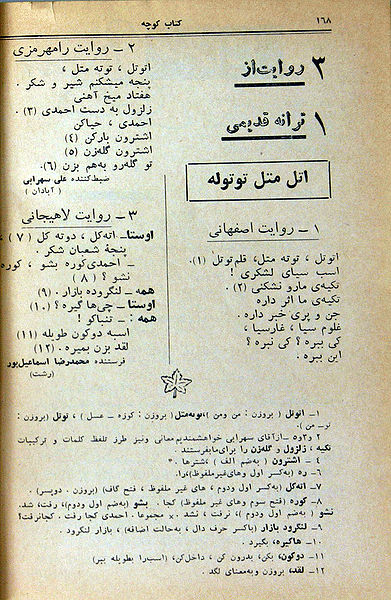 ۱۶۸
کتاب کوچه
۳ روایت از
۱ ترانه قدیمی
اتل متل توتوله
۱ ـ روایت اصفهانی
اتوتل ، توته متل، قلم‌توتل (۱).
اسب سیای لشگری !
تکیه‌ی مارو نشکنی (۲).
تکیه‌ی ما اثر داره
جن و پری خبر داره .
غلوم سیا ، غارسیا ،
کی ببره ؟ کی نبره ؟
این ببره .
۲ ـ روایت رامهرمزی
اتوتل ، توته متل ،
پنجه میشکنم شیر و شکر .
هفتاد میخ آهنی
زلزول به دست احمدی (۳) .
احمدی ، حیاکن
اشترون بارکن (۴)
اشترون گله‌زن (۵)
تو گله‌رو به‌هم بزن (۶).
ضبط‌کننده علی سهرابی
( آبادان )
۳ ـ روایت لاهیجانی
اوستا ـ اته‌کل ، دوته کل ( ۷ ) ،
پنجهٔ شعبان شکر .
ـ احمدی‌کوره بشو ، کوره
نشو ؟ ( ۸ )
همه ـ لنگروده بازار . (۹)
اوستا ـ چی‌ها گیره ؟ (۱۰)
همه : ـ تنباکو !
اسبه دوکون طویله (۱۱)
لقد بزن بمیره . (۱۲)
فرستنده محمدرضا اسماعیل‌پور
(رشت)
۱ـ اتوتل ( بروزن : من ومن )، توته‌متل( بروزن : کوزه ـ عسل ) ، توتل (بروزن :
تو ـ من ).
۲ و۳و۵ ـ ازآقای سهرابی خواهشمندیم‌معانی ونیز طرز تلفظ کلمات و ترکیبات
تکیه ، زلزول و گله‌زن را برای‌مابفرستند .
۴ ـ اشترون ( به‌ضم الف ) ،شترها .
۶ـ ره (به‌کسر اول وهای‌غیرملفوظ)،را.
۷ـ اته‌کل (به‌کسر اول و دوم ، های غیر ملفوظ ، فتح گاف) (بروزن . دوپسر) .
۸ـ کوره (فتح سوم وهای غیر ملفوظ) کجا . بشو (به‌ضم اول ودوم)، رفت، شد.
نشو (به‌ضم اول ودوم )، نرفت ، نشد . × مجموعا . احمدی کجا رفت . کجانرفت؟
۹ـ لنگرود بازار (باکسر حرف دال ، به‌حالت اضافه) ، بازار لنگرود .
۱۰ـ هاگیره، بگیرد .
۱۱ـ دوکون، بکن، بدرون کن ، داخل‌کن، (اسب‌را بطویله ببر)
۱۲ـ لقد، بروزن وبه‌معنای لگد .